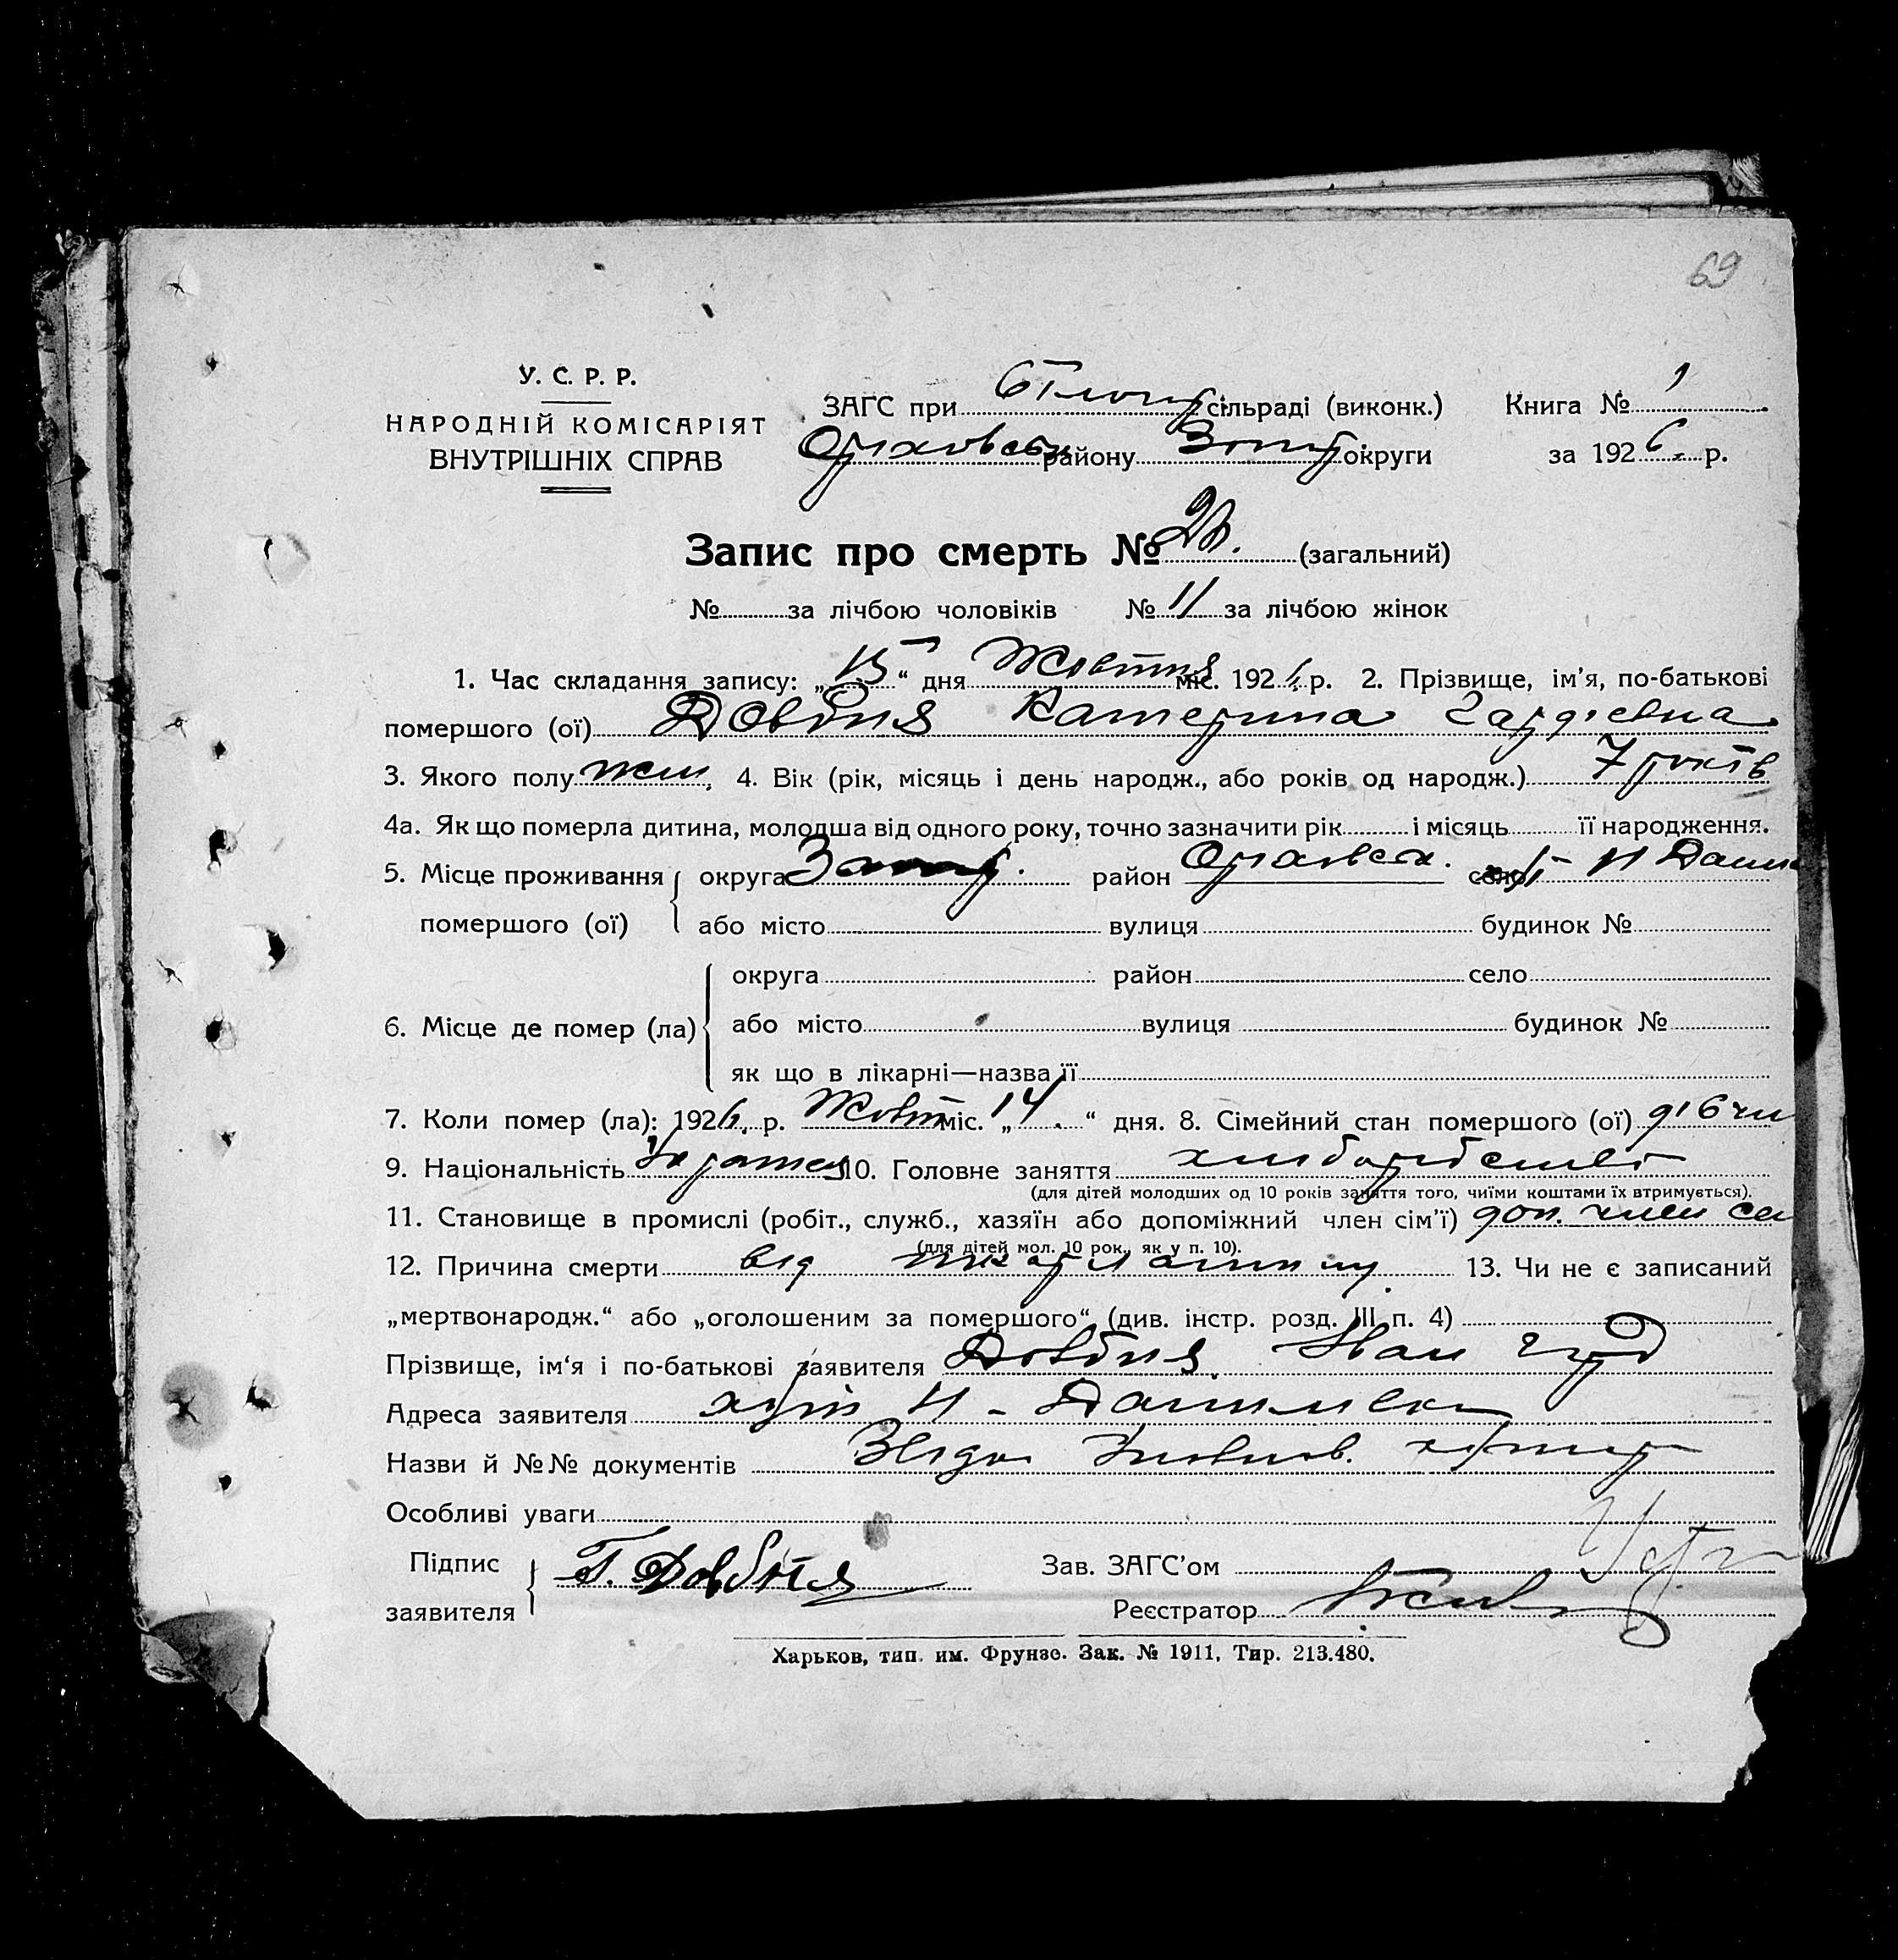 69
У. С. Р. Р.
НАРОДНІЙ КОМІСАРІЯТ
ВНУТРІШНІХ СПРАВ
ЗАГС при сільраді (виконк.) Книга № 1
Оріховськ району Запор округи за 1926 р.
Запис про смерть № (загальний)
№ за лічбою чоловіків № 11 за лічбою жінок
1. Час складання запису: „15“ дня Жовтня міс. 1926 р. 2. Прізвище, ім'я, по-батькові
помершого (ої) Довбня Катерина Гардієвна
3. Якого полу жін, 4. Вік (рік, місяць і день народж., або років од народж.) 7 років
4а. Як що померла дитина, молодша від одного року, точно зазначити рік і місяць її народження.
5. Місце проживання помершого (ої) округа Запор. район Оріховськ. село Н Дани
або місто вулиця будинок №
6. Місце де помер (ла) округа район село
або місто вулиця будинок №
як що в лікарні—назва її
7. Коли помер (ла): 1926 р. Жовт міс. „14“ дня. 8. Сімейний стан помершого (ої) дівчи
9. Національність 10. Головне заняття хліборобство
(для дітей молодших од 10 років заняття того, чиїми коштами їх втримується).
11. Становище в промислі (робіт., служб., хазяїн або допоміжний член сім'ї) доп. член се
(для дітей мол. 10 рок., як у п. 10).
12. Причина смерти від шкарлатини 13. Чи не є записаний
„мертвонародж.“ або „оголошеним за помершого“ (див. інстр. розд. III п. 4)
Прізвище, ім‘я і по-батькові заявителя Довбня Іван
Адреса заявителя хутір Н-Данилівка
Назви й №№ документів
Особливі уваги
Підпис заявителя Г. Довбня Зав. ЗАГС'ом
Реєстратор
Харьков, тип. им. Фрунзе. Зак. № 1911, Тир. 213.480.